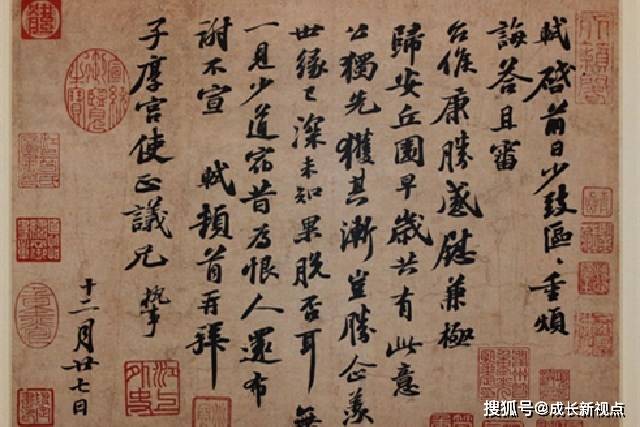 軾啓前日少致區〻重煩
誨答且審
台候康勝感慰兼極
歸安丘園早歲共有此意
公獨先獲其漸豈勝企羨
世緣已深未知果脫否耳無
一見少道宿昔為恨人還布
謝不宣 軾頓首再拜
子厚宮使正議兄 執事
十二月廿七日
搜狐号@成长新视点